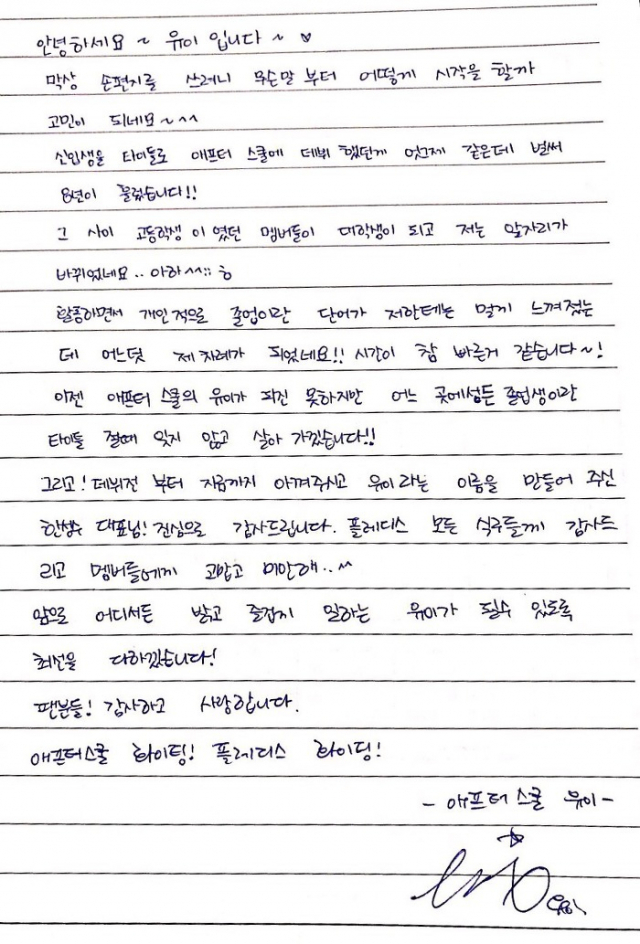 안녕하세요 ~ 유이 입니다 ~ ♥
막상 손편지를 쓰려니 무슨말 부터 어떻게 시작을 할까
고민이 되네요~^^
신입생을 타이틀로 애프터 스쿨에 데뷔 했던게 엊그제 같은데 벌써
8년이 흘렀습니다!!
그 사이 고등학생 이였던 멤버들이 대학생이 되고 저는 앞자리가
바뀌었네요.. 아하^^;; ㅎ
활동하면서 개인적으로 졸업이란 단어가 저한테는 멀게 느껴졌는
데 어느덧 제 차례가 되었네요!! 시간이 참 빠른거 같습니다~!
이젠 애프터 스쿨의 유이가 되진 못하지만 어느 곳에섣든 졸업생이란
타이틀 절때 잊지 않고 살아 가겠습니다!!
그리고! 데뷔전 부터 지금까지 아껴주시고 유이라는 이름을 만들어 주신
한성수 대표님! 진심으로 감사드립니다. 플레디스 모든 식구들께 감사드
리고 멤버들에게 고맙고 미안해..^^
앞으로 어디서든 밝고 즐겁게 일하는 유이가 될수 있도록
최선을 다하겠습니다!
팬분들! 감사하고 사랑합니다.
애프터스쿨 화이팅! 플레디스 화이팅!
- 애프터 스쿨 유이 -